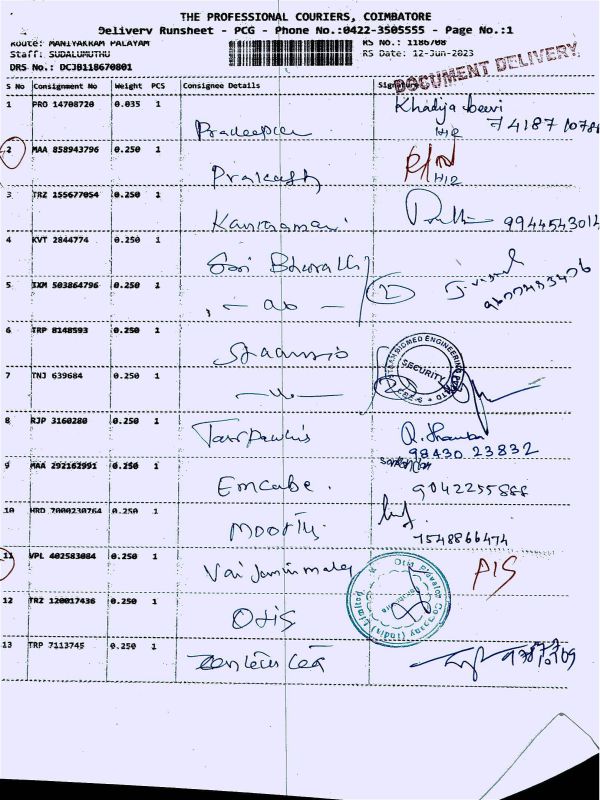 THE PROFESSIONAL COURIERS, COIMBATORE
Delivery Runsheet - PCG - Phone No.:0422-3505555 - Page No.:1
Route: MANIYAKRAM PALAYAM RS No.: 1186708
Staff: SUDALUMUTHU RS Date: 12-Jun-2023
DRS No.: DCJB118670801
DOCUMENT DELIVERY
S No Consignment No Weight PCS Consignee Details
1 PRO 14708720 0.035 1 Khadija beevi
H12
2 MAA 858943796 0.250 1 Prakash
H12
3 TRZ 155677054 0.250 1 9944543014
4 KVT 2844774 0.250 1 Sri Bharathi
5 IXM 503864796 0.250 1 - do - 2
6 TRP 8148593 0.250 1
SECURITY
7 TNJ 639684 0.250 1
8 RJP 3160280 0.250 1
98430 23832
9 MAA 292162991 0.250 1 Emcabe. 9042255888
10 HRD 7000230764 0.250 1 Moorthy
7548866474
11 VPL 402583084 0.250 1 P/S
12 TRZ 120017436 0.250 1 Otis
Otis Elevator Company (India) Limited
13 TRP 7113745 0.250 1